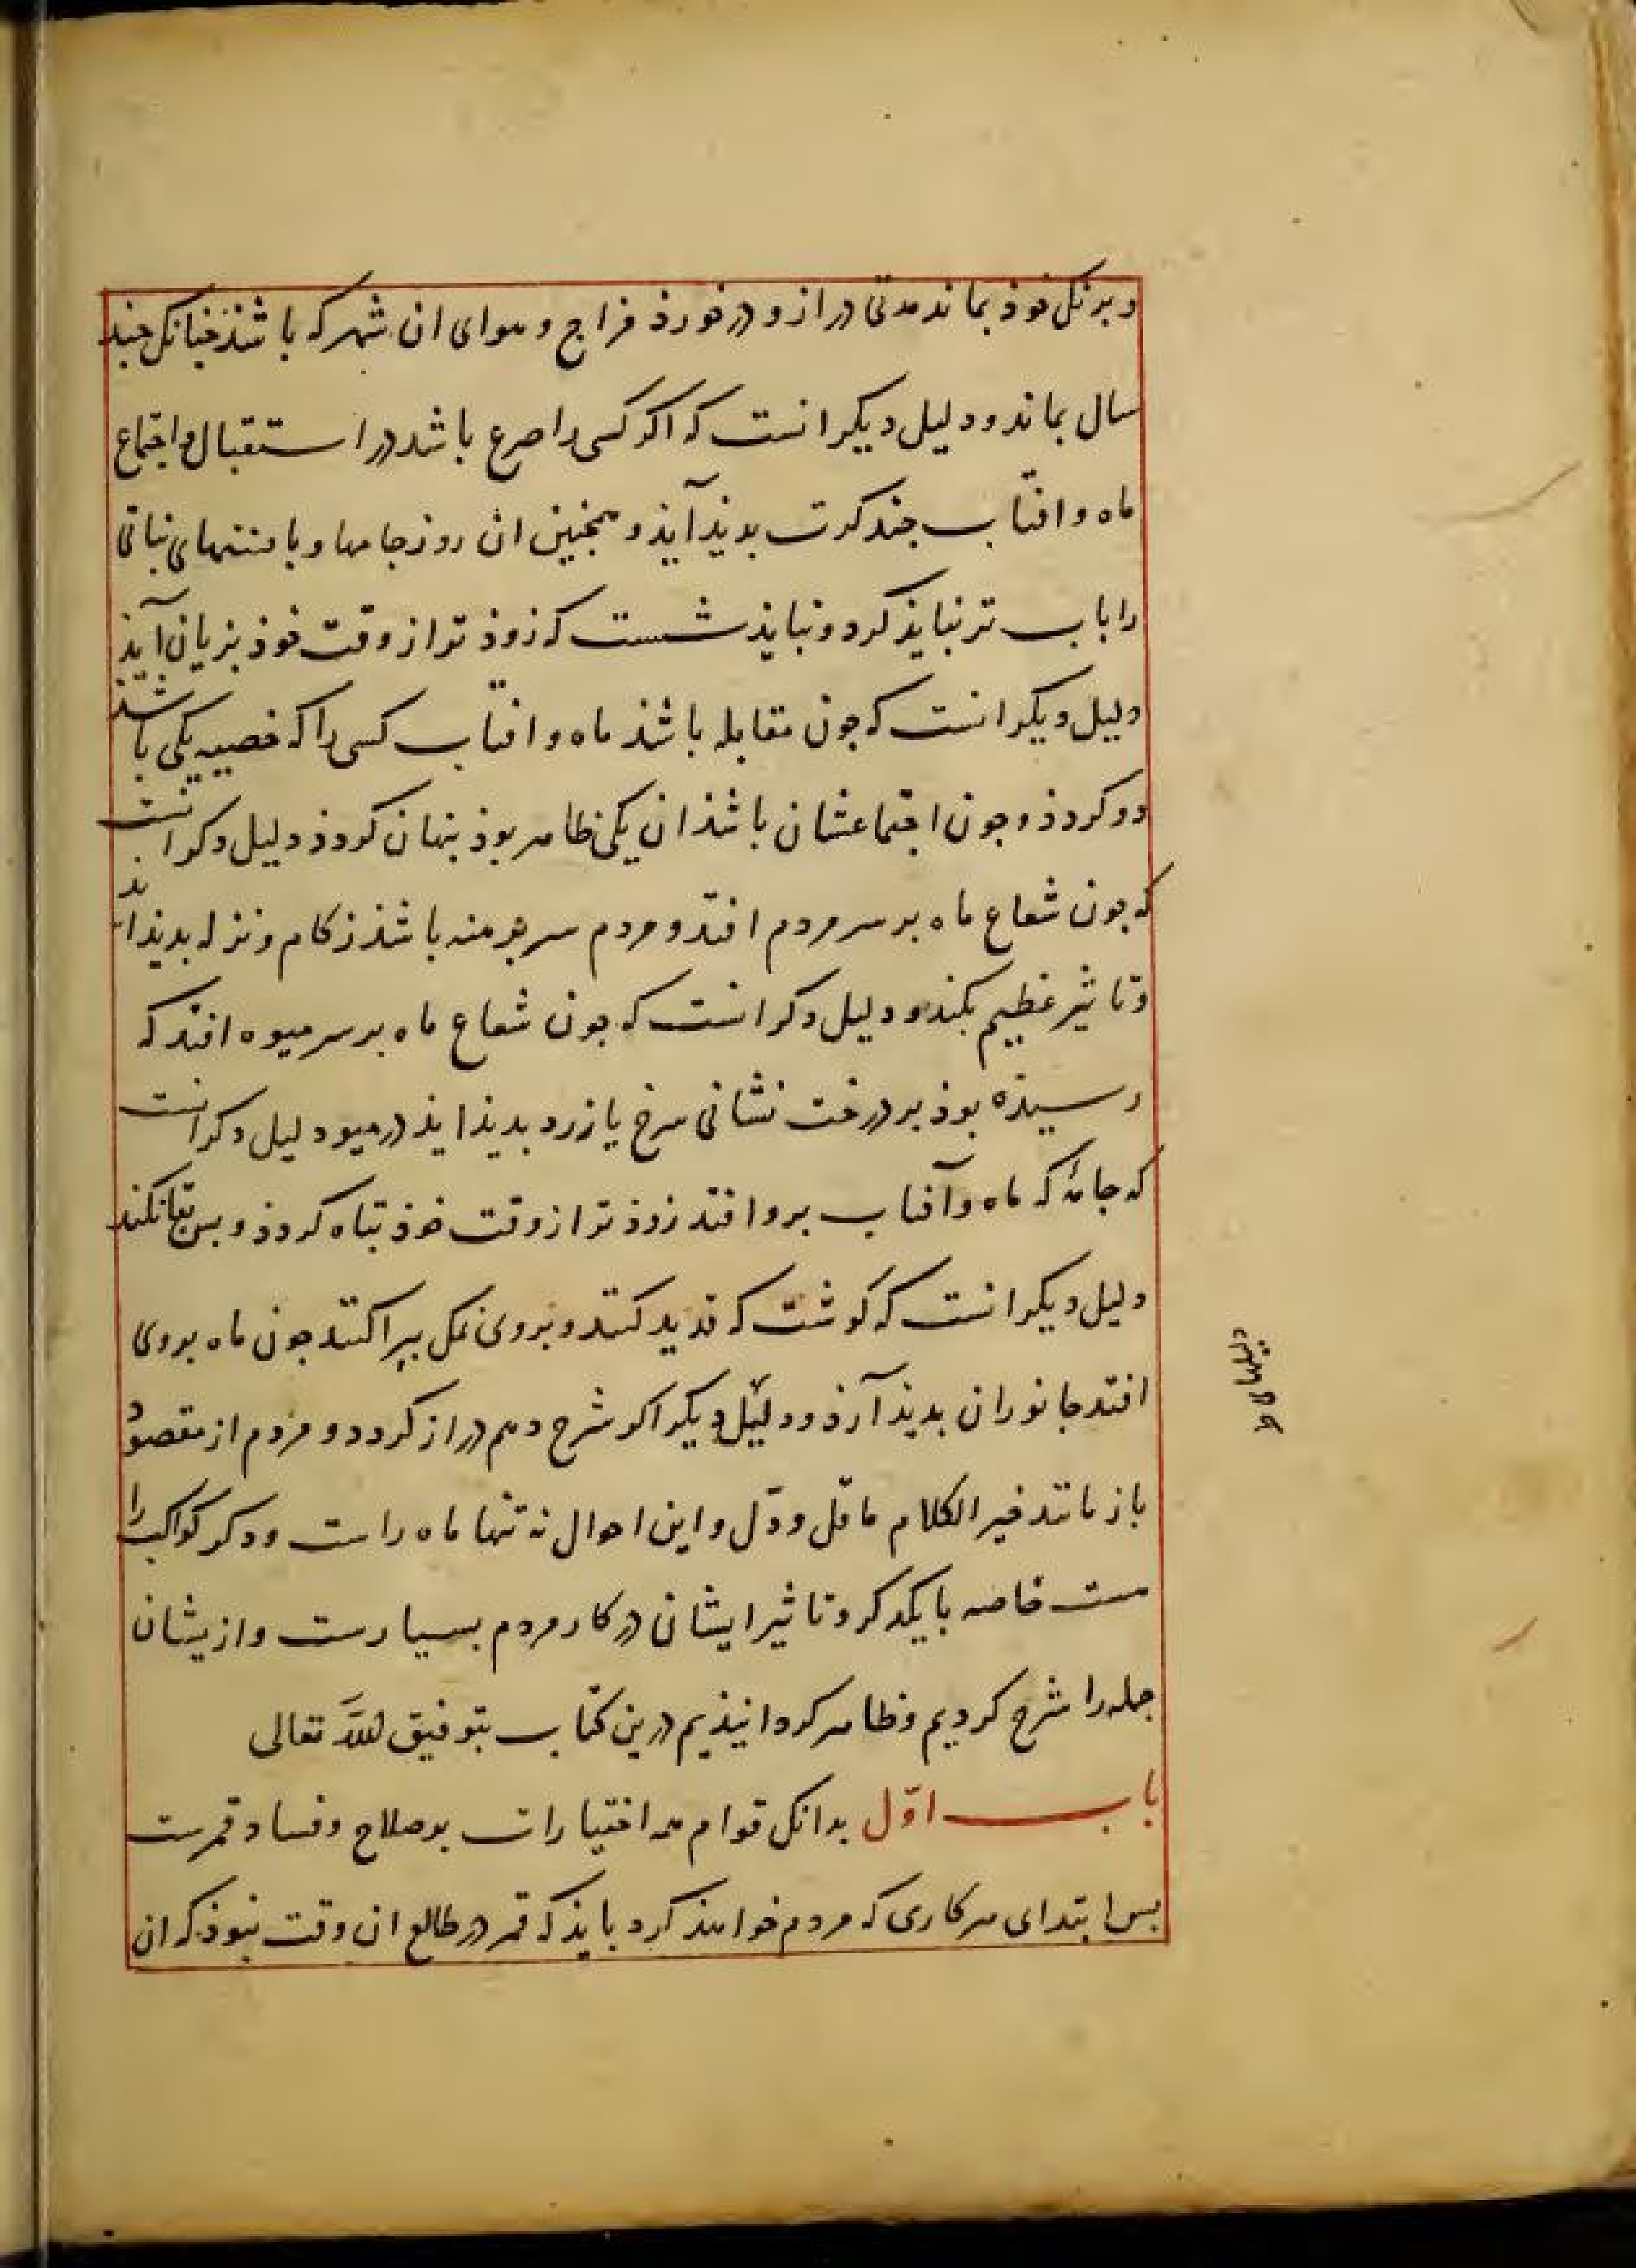 و برنک خوذ بماند مدتی دراز و در خورذ مزاج و هوای ان شهر که باشذ جنانک جند
سال بماند و دلیل دیکر انست که اکر کسی را صرع باشد در استقبال و اجتماع
ماه و افتاب جند کرت بدیذ آیذ و همجنین ان روز جامها و بافتنهای نباتی
را باب تر نبایذ کرد و نبایذ شست که زوذ تر از وقت خوذ بزیان آیذ
دلیل دیکر انست که جون مقابله باشذ ماه و افتاب کسی را که خصیه یکی باشذ
دو کردذ و جون اجتماعشان باشذ ان یکی ظاهر بوذ بنهان کردذ دلیل دکر انست
که جون شعاع ماه بر سر مردم افتد و مردم سر برهنه باشذ زکام و نزله بدیذ اید
و تاثیر عظیم بکند و دلیل دکر انست که جون شعاع ماه بر سر میوه افتد که
رسیذه بوذ بر درخت نشانی سرخ یا زرد بدیذ ایذ در میو دلیل دکر انست
که جامهٔ که ماه و آفتاب برو افتد زوذ تر از وقت خوذ تباه کردذ و بس بقا نکند
دلیل دیکر انست که کوشت که قدید کنند و بروی نمک بپراکنند جون ماه بروی
افتد جانوران بدیذ آرذ و دلیل دیکر اکر شرح دهم دراز کردد و مردم از مقصود
باز مانند خیر الکلام ما قل و دل و این احوال نه تنها ماه راست و دکر کواکب را
هست خاصه با یکدکر و تاثیر ایشان در کار مردم بسیارست و ازیشان
جمله را شرح کردیم و ظاهر کردانیذیم درین کتاب بتوفیق الله تعالی
باب اوّل بدانک قوام همه اختیارات بر صلاح و فساد قمرست
بس ابتدای هر کاری که مردم خواهند کرد بایذ که قمر در طالع ان وقت نبوذ که ان
دلیلهای